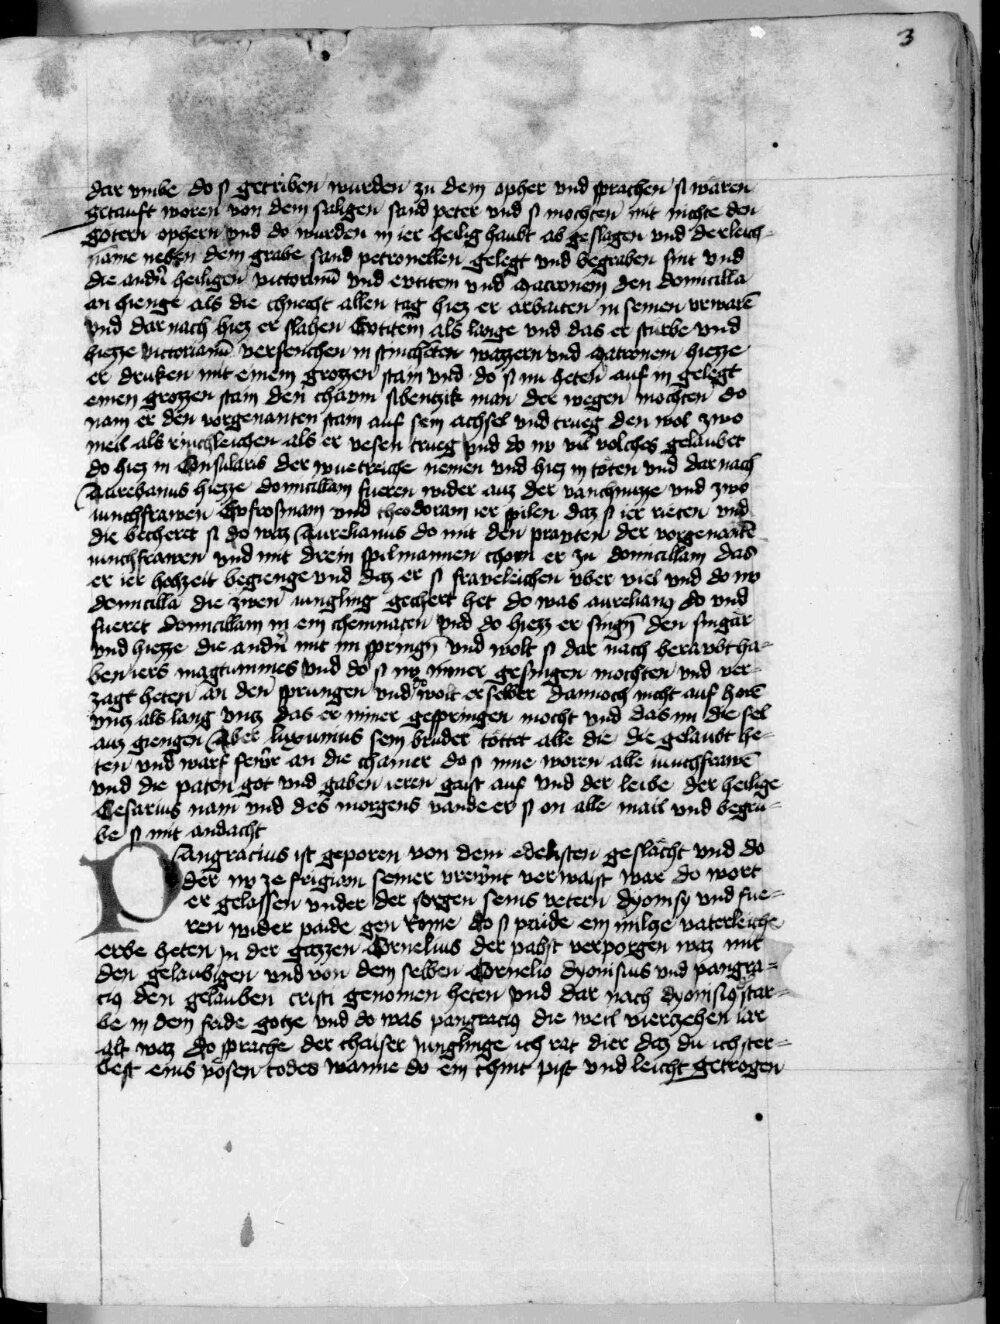 3
dar vmbe do si getriben wurden zu dem opher vnd sprachen si wären
getauft woren von dem säligen sand peter vnd si mochten mit nichte den
gotern ophern vnd do wurden in ier heilig haubt ab geslagen vnd der leich-
name neben dem grabe sand petronellen gelegt vnd begraben sint vnd
die andn̄ heiligen victorinū vnd euticem vnd Maronem den domicilla
an hienge als die chnecht allen tag hiez er arbaiten in seinen vrwarē
vnd dar nach hiez er slahen Euticem als lange vnd das er sturbe vnd
hiezze victorianū versenchen in stincheten wazzern vnd Maronem hiezze
er druken mit einem grozzen stain vnd do si im heten auf in gelegt
einen grozzen stain den chawm sibentzik man der wegen mochten do
nam er den vorgenanten stain auf sein achsel vnd trueg den wol zwo
meil als ringchleichen als er vesen trueg vnd do nv vil volches gelaubet
do hiez in Consularis der wuetreiche nemen vnd hiez in töten vnd dar nach
Aurelianus hiezze domicillam fueren wider auz der vanchnuzze vnd zwo
iunchfrawen Eufrosinam vnd theodoram ier spilen daz si ier rieten vnd
die becheret si do waz Aurelianus do mit den prawten der vorgenantē
iunchfrawen vnd mit drein spilmannen chom er zu domicillam das
er ier hochzeit begienge vnd daz er si fraveleichen vber viel vnd do nv
domicilla die zwen iungling gechert het do was aurelianus do vnd
fueret domicillam in ein chemnaten vnd do hiezz er singn̄ den singär
vnd hiezze die andn̄ mit im springn̄ vnd wolt si dar nach berawbt ha-
ben iers magtummes vnd do si nv nimer gesingen mochten vnd ver-
zagt heten an den sprungen vnd do wolt er selber dannoch nicht auf horē
vntz als lang vntz das er nimer gespringen mocht vnd das im die sel
auz giengen Aber luxurius sein bruder töttet alle die die gelaubt he-
ten vnd warf fewr an die chamer do si inne woren alle iunchfrawē
vnd die paten got vnd gaben ieren gaist auf vnd der leibe der heilige
Cesarius nam vnd des morgens vande er si on alle mail vnd begru-
be si mit andacht
Pangracius ist geporen von dem edelisten geslächt vnd do
der nv ze frigiam seiner vrewnt verwaist war do wort
er gelassen vnder der sorgen seins vetern dyonisy vnd fue-
ren wider paide gen Rome do si paide ein milge vaterleiche
erbe heten in der gazzen Cornelius der pabst verporgen waz mit
den gelaubigen vnd von dem selben Cornelio dyonisius vnd pangra-
cius den gelauben cristi genomen heten vnd dar nach dyonisius star-
be in dem fride gotze vnd do was pangracius die weil vierzehen iar
alt waz do sprache der chaiser iunglinge ich rat dier daz du icht ster-
best eins pösen todes wanne do ein chint pist vnd leicht getrogen